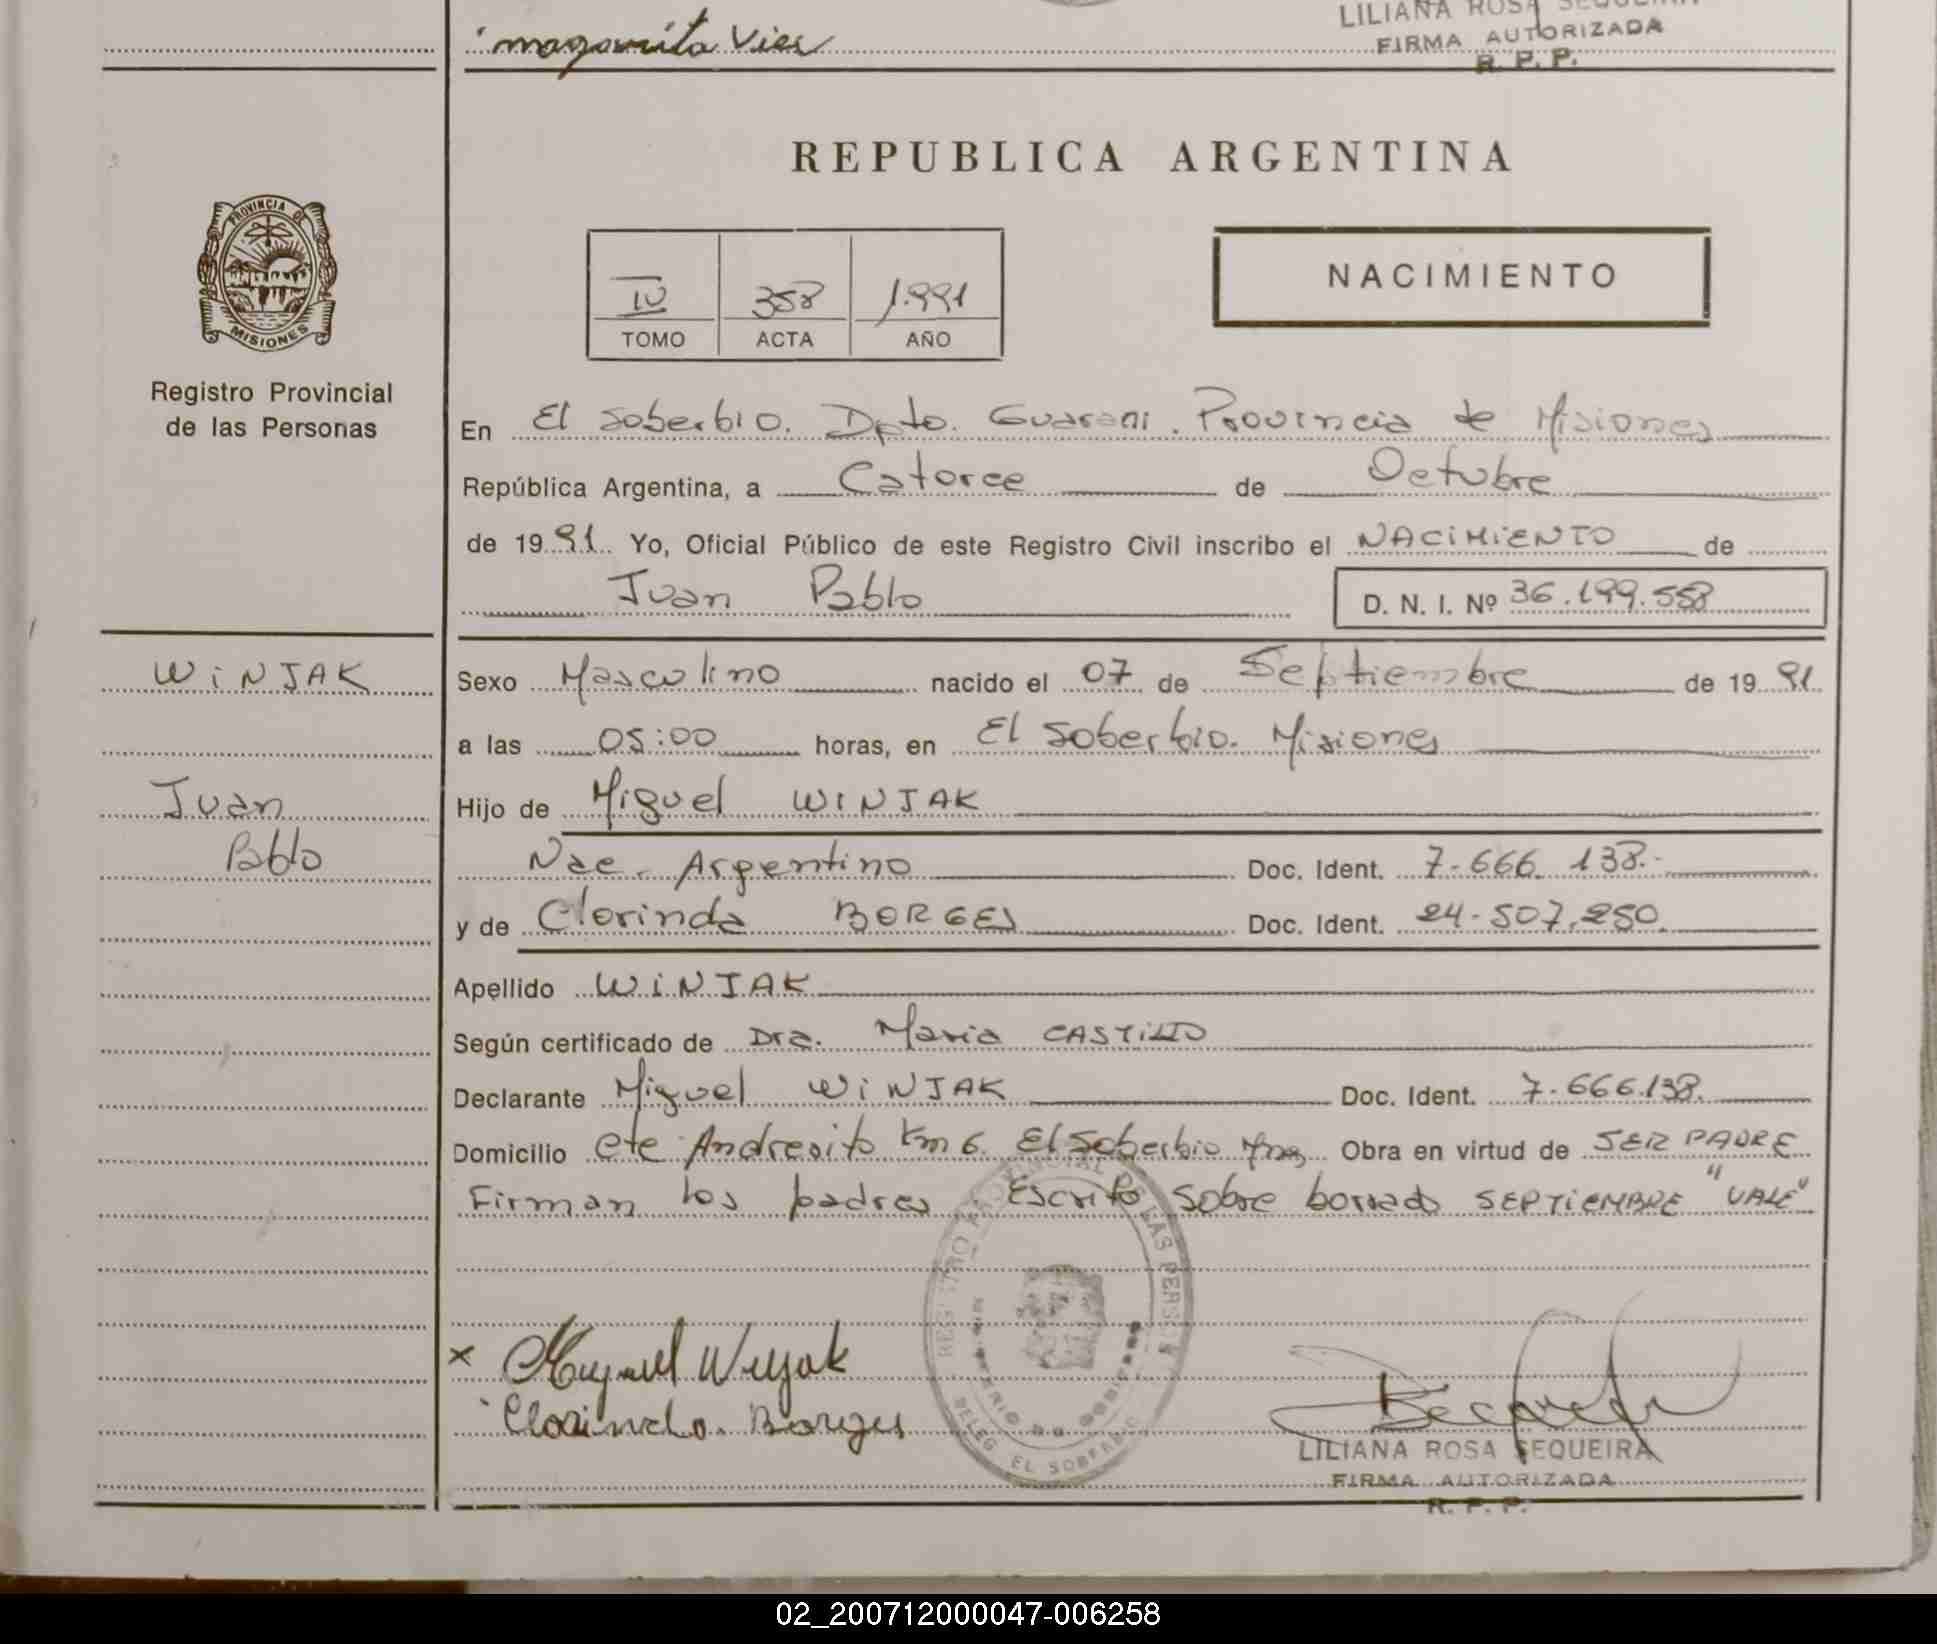 margarita Vier
LILIANA ROSA SEQUEIRA
FIRMA AUTORIZADA
R. P. P.
REPUBLICA ARGENTINA
PROVINCIA DE
MISIONES
Registro Provincial
de las Personas
IV 358 1.991
TOMO ACTA AÑO
NACIMIENTO
En El Soberbio. Dpto. Guarani. Provincia de Misiones
República Argentina, a Catorce de Octubre
de 1991 Yo, Oficial Público de este Registro Civil inscribo el NACIMIENTO de
Juan Pablo D. N. I. Nº 36.199.558
WINJAK
Juan
Pablo
Sexo Masculino nacido el 07 de Septiembre de 1991
a las 05:00 horas, en El Soberbio. Misiones
Hijo de Miguel WINJAK
Nac. Argentino Doc. Ident. 7.666.138.-
y de Clorinda BORGES Doc. Ident. 24.507.250.
Apellido WINJAK
Según certificado de Dra. Maria CASTILLO
Declarante Miguel WINJAK Doc. Ident. 7.666.138.
Domicilio Cte Andresito Km 6. El Soberbio Mnes Obra en virtud de SER PADRE
Firman los padres Escrito sobre borrado SEPTIEMBRE "VALE"
REGISTRO PROVINCIAL DE LAS PERSONAS
MINISTERIO DE GOBIERNO
DELEG. EL SOBERBIO
x Miguel Winjak
Clorinda. Borges
LILIANA ROSA SEQUEIRA
FIRMA AUTORIZADA
R. P. P.
02_200712000047-006258